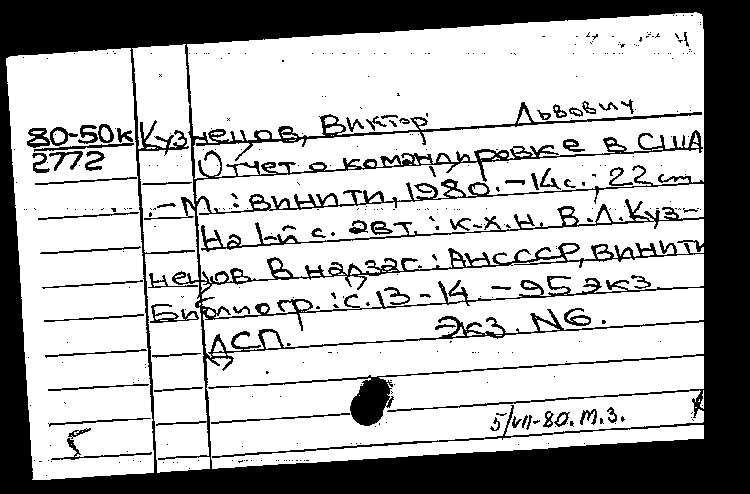 Ч
80-50к Кузнецов, Виктор Львович
2772 Отчет о командировке в США
.-М. : ВИНИТИ, 1980. - 14 с. ; 22 см.
На 1-й с. авт. : к.х.н. В.Л. Куз-
нецов. В надзаг. : АН СССР, ВИНИТИ
Библиогр. : с. 13-14. - 95 экз.
ДСП. Экз. N6.
5/VII-80. М.З.
5